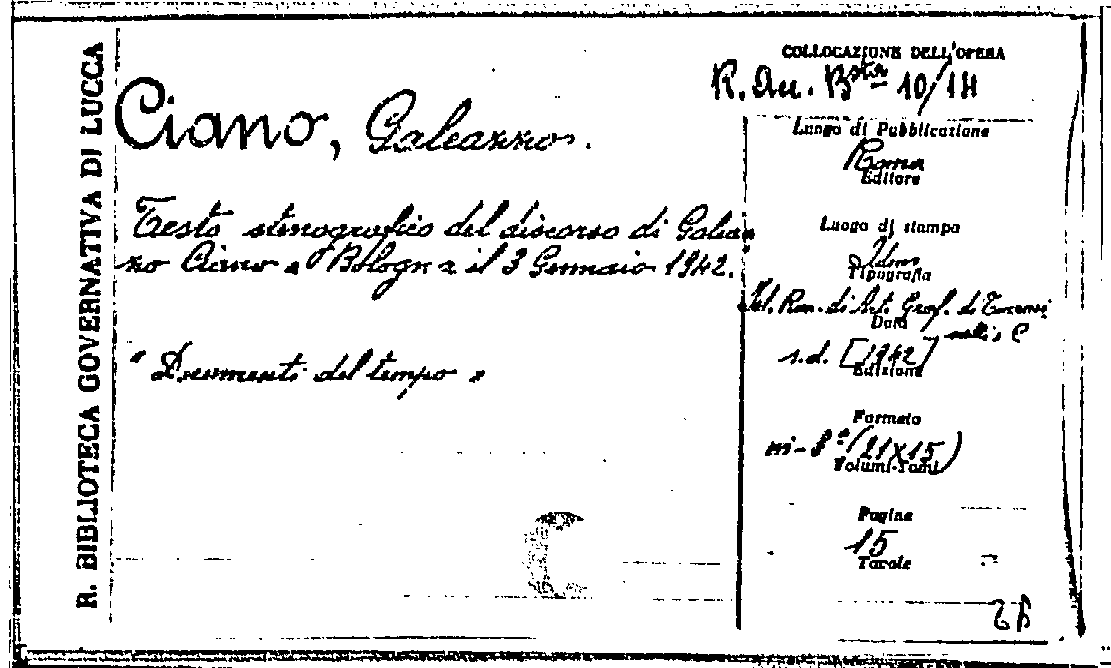 R. BIBLIOTECA GOVERNATIVA DI LUCCA
Ciano, Galeazzo.
Testo stenografico del discorso di Galeaz
zo Ciano a Bologna il 3 Gennaio 1942.
"Documenti del tempo"
COLLOCAZIONE DELL'OPERA
R. Au. Bsta 10/14
Luogo di Pubblicazione
Roma
Editore
Luogo di stampa
Idem
Tipografia
Ist. Rom. di Art. Graf. di
Data
s.d. [1942]
Edizione
Formato
in-8° (21X15)
Volumi-Tomi
Pagine
15
Tavole